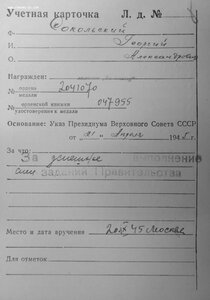 Учетная карточка Л. д. №
Ф. Сокольский
И. Георгий
О. Александрович
Награжден:
№ ордена 2041070
медали
№ орденской книжки 047955
удостоверения к медали
Основание: Указ Президиума Верховного Совета СССР
от „21“ апреля 1945 г.
За что:
За успешное выполнение
заданий Правительства
Место и дата вручения 45 Москва
Для отметок